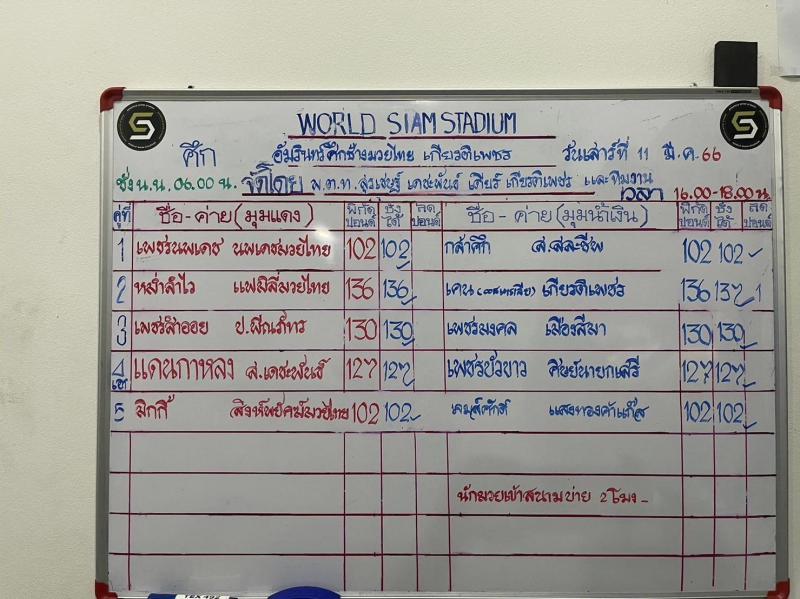 WORLD SIAM STADIUM
ศึก อัมรินทร์ศึกช้างมวยไทย เกียรติเพชร วันเสาร์ที่ 11 มี.ค.66
ชั่ง น.น. 06.00 น. จัดโดย พ.ต.ท. สุรเชษฐ์ เดชะพันธ์ เกียรติเพชร และทีมงาน
เวลา 16.00-18.00 น.
คู่ที่ ชื่อ-ค่าย(มุมแดง) พิกัดปอนด์ ชั่งได้ ลดปอนด์ ชื่อ-ค่าย(มุมน้ำเงิน) พิกัดปอนด์ ชั่งได้ ลดปอนด์
1 เพชรนพเดช นพเดชมวยไทย 102 102 กล้าศึก ส.สละชีพ 102 102
2 หม่ำลำไว แฟมิลี่มวยไทย 136 136 เคน เกียรติเพชร 136 137 1
3 เพชรลำออย ป.พีณภัทร 130 130 เพชรมงคล เมืองสีมา 130 130
4 แดนกาหลง ส.เดชะพันธ์ 127 127 เพชรบัวขาว ศิษย์นายกเสรี 127 127
5 มิกกี้ 102 102 แสงทองค้าแก๊ส 102 102
นักมวยเข้าสนามบ่าย 2 โมง